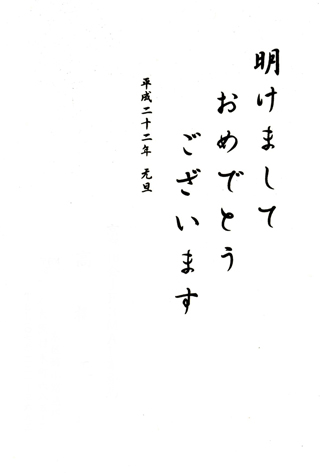 明けまして
おめでとう
ございます
平成二十二年 元旦